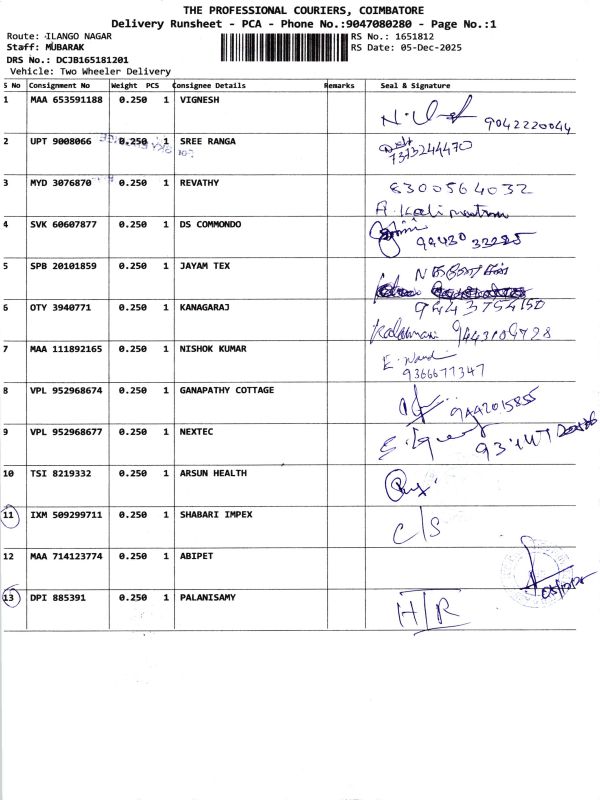 THE PROFESSIONAL COURIERS, COIMBATORE
Delivery Runsheet - PCA - Phone No.:9047080280 - Page No.:1
Route: ILANGO NAGAR
RS No.: 1651812
Staff: MUBARAK
RS Date: 05-Dec-2025
DRS No.: DCJB165181201
Vehicle: Two Wheeler Delivery
S No Consignment No Weight PCS Consignee Details Remarks Seal & Signature
1 MAA 653591188 0.250 1 VIGNESH
9042220044
2 UPT 9008066 0.250 1 SREE RANGA
7373244470
3 MYD 3076870 0.250 1 REVATHY
8300564032
4 SVK 60607877 0.250 1 DS COMMONDO
5 SPB 20101859 0.250 1 JAYAM TEX
6 OTY 3940771 0.250 1 KANAGARAJ
7 MAA 111892165 0.250 1 NISHOK KUMAR
9366677347
8 VPL 952968674 0.250 1 GANAPATHY COTTAGE
9442015855
9 VPL 952968677 0.250 1 NEXTEC
10 TSI 8219332 0.250 1 ARSUN HEALTH
11 IXM 509299711 0.250 1 SHABARI IMPEX
C/S
12 MAA 714123774 0.250 1 ABIPET
13 DPI 885391 0.250 1 PALANISAMY
H/R